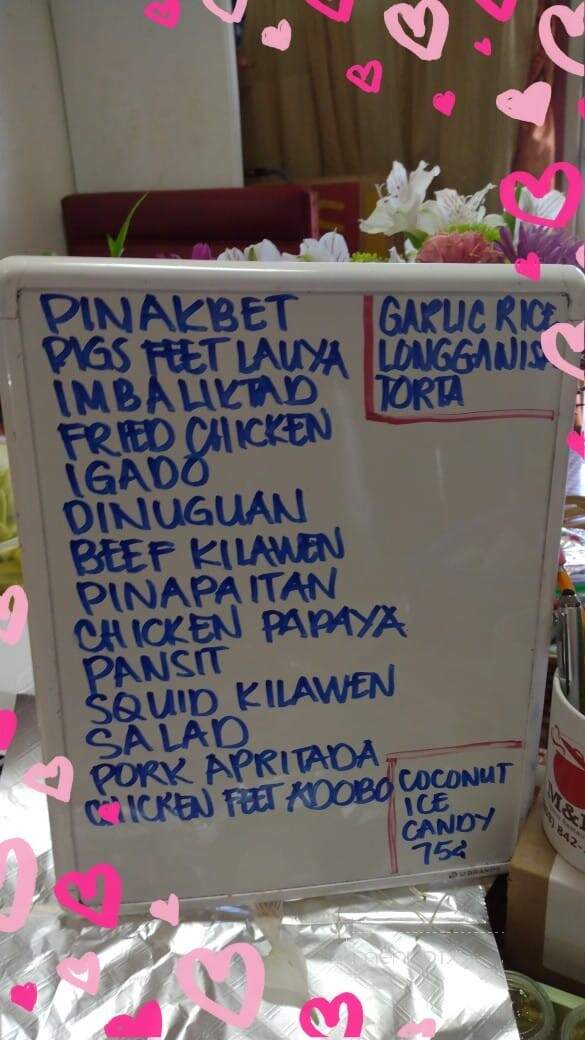 PINAKBET
PIGS FEET LAUYA
IMBALIKTAD
FRIED CHICKEN
IGADO
DINUGUAN
BEEF KILAWEN
PINAPAITAN
CHICKEN PAPAYA
PANSIT
SQUID KILAWEN
SALAD
PORK APRITADA
CHICKEN FEET ADOBO
GARLIC RICE
LONGGANISA
TORTA
COCONUT
ICE
CANDY
75¢
U BRANDS
M&
842-
menupix